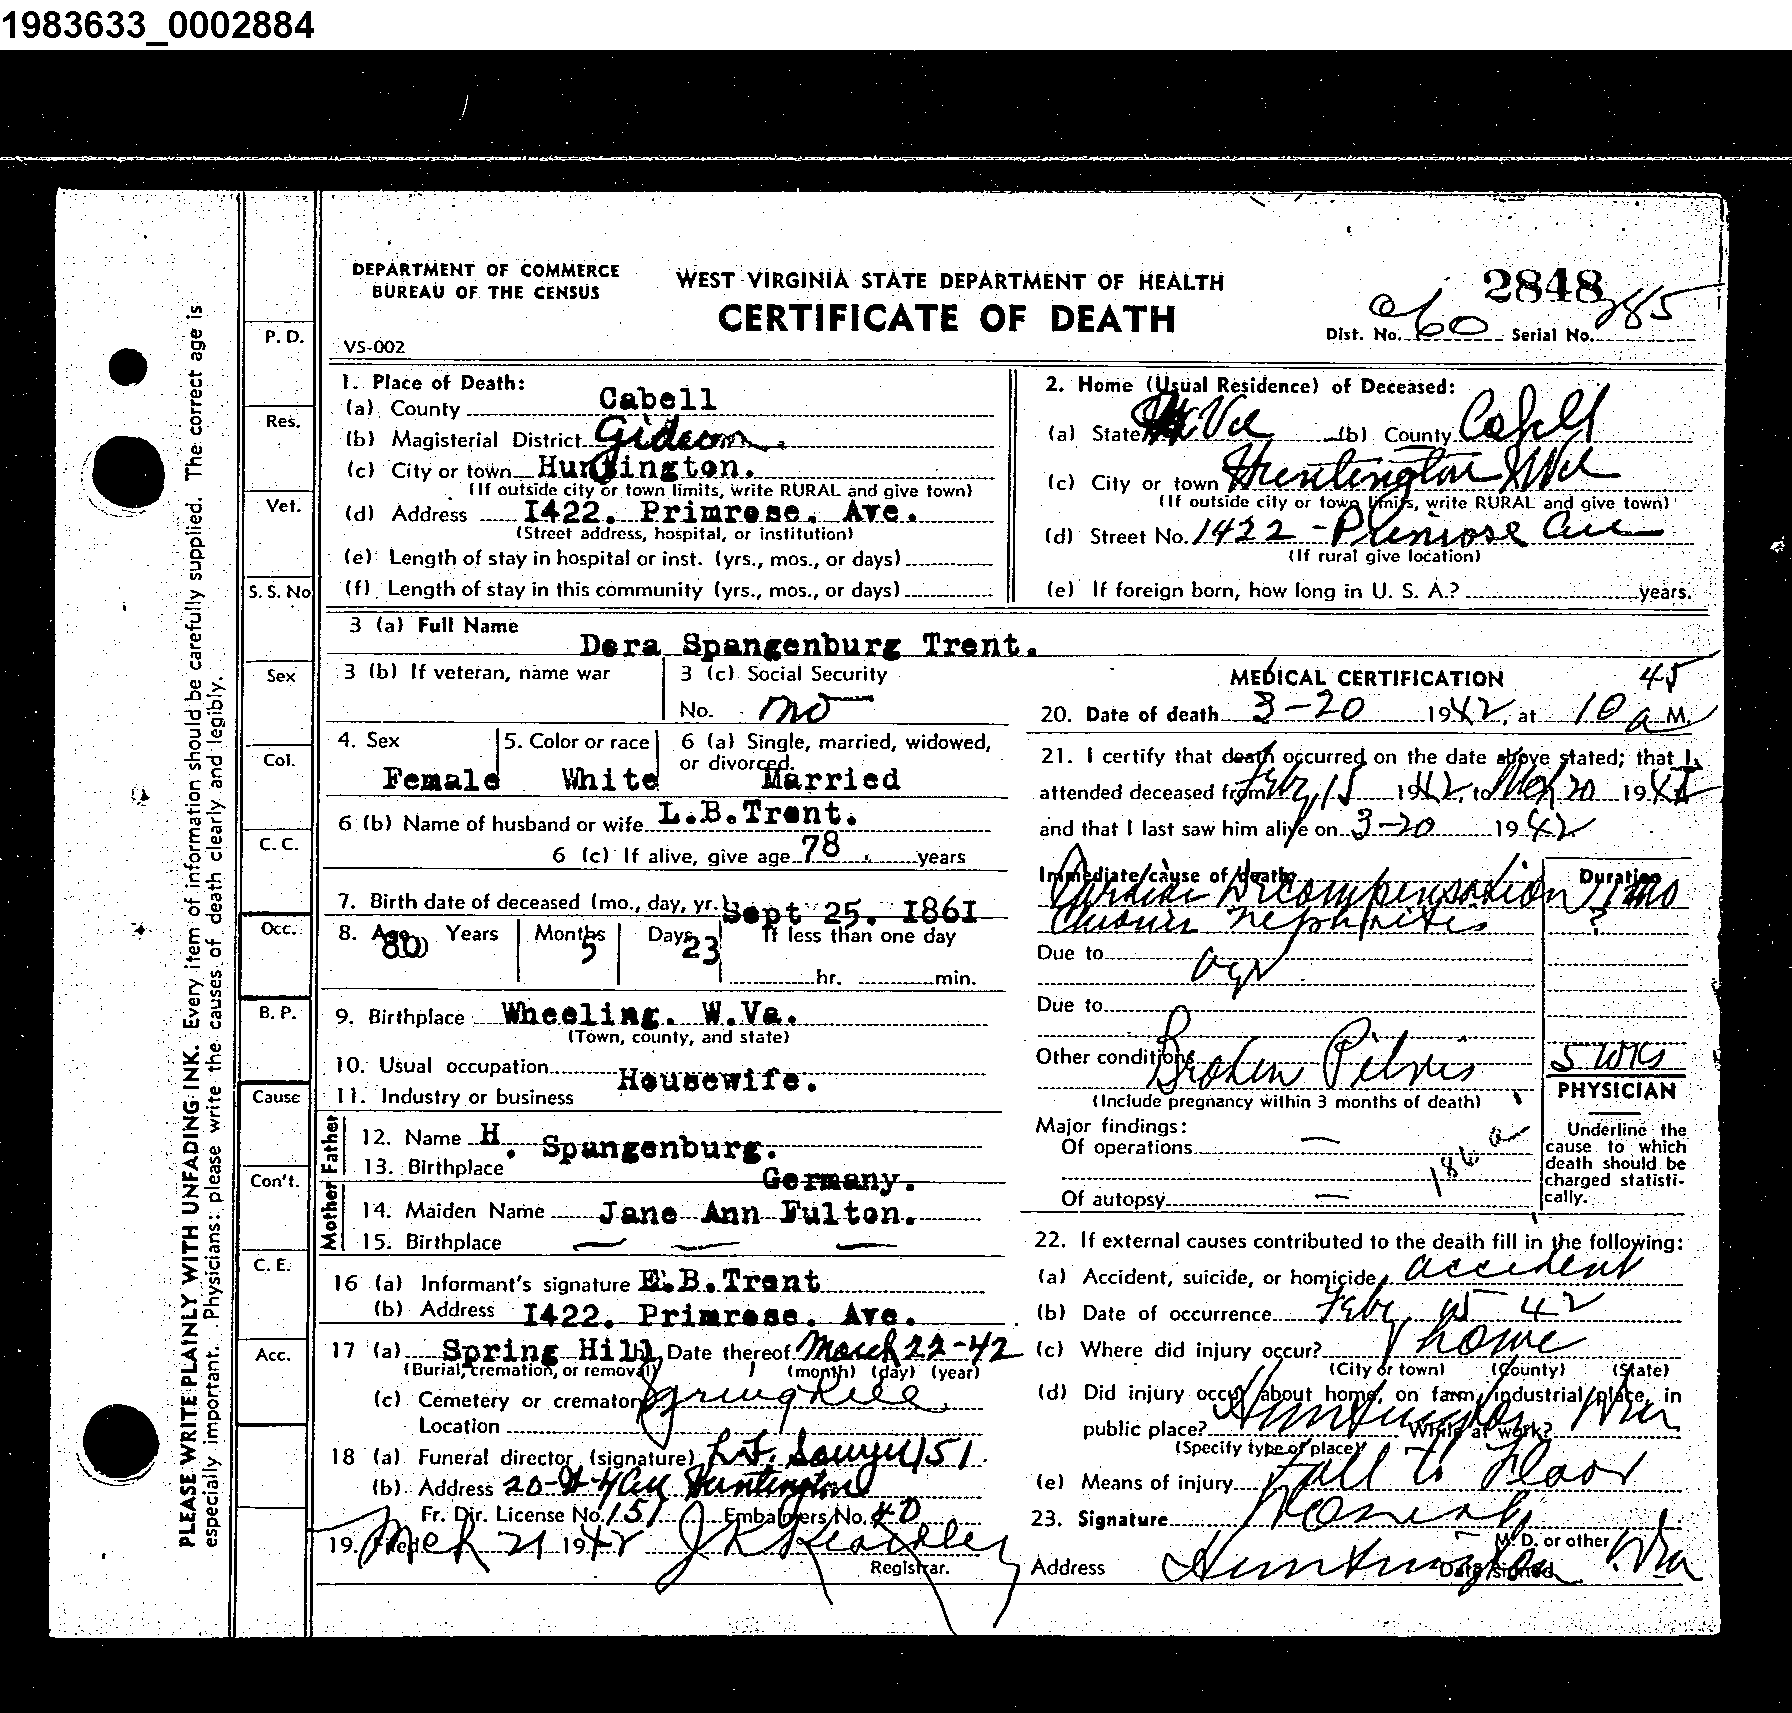 1983633_0002884
DEPARTMENT OF COMMERCE
BUREAU OF THE CENSUS
WEST VIRGINIA STATE DEPARTMENT OF HEALTH
CERTIFICATE OF DEATH
2848
Dist. No. 060 Serial No. 285
VS-002
1. Place of Death:
(a) County Cabell
(b) Magisterial District Gideon.
(c) City or town Huntington.
(If outside city or town limits, write RURAL and give town)
(d) Address 1422. Primrose. Ave.
(Street address, hospital, or institution)
(e) Length of stay in hospital or inst. (yrs., mos., or days)
(f) Length of stay in this community (yrs., mos., or days)
2. Home (Usual Residence) of Deceased:
(a) State W Va (b) County Cabell
(c) City or town Huntington W Va
(If outside city or town limits, write RURAL and give town)
(d) Street No. 1422 - Primrose Ave
(If rural give location)
(e) If foreign born, how long in U. S. A.? years.
3 (a) Full Name Dora Spangenburg Trent.
3 (b) If veteran, name war
3 (c) Social Security
No. no
4. Sex Female
5. Color or race White
6 (a) Single, married, widowed, or divorced. Married
6 (b) Name of husband or wife L.B.Trent.
6 (c) If alive, give age 78 years
7. Birth date of deceased (mo., day, yr.) Sept 25. 1861
8. Age 80 Years Months 5 Days 23 If less than one day
hr. min.
9. Birthplace Wheeling. W.Va.
(Town, county, and state)
10. Usual occupation Housewife.
11. Industry or business
Father
12. Name H. Spangenburg.
13. Birthplace Germany.
Mother
14. Maiden Name Jane Ann Fulton.
15. Birthplace — — —
16 (a) Informant's signature E.B.Trent
(b) Address 1422. Primrose. Ave.
17 (a) Spring Hill (b) Date thereof March 22-42
(Burial, cremation, or removal) (month) (day) (year)
(c) Cemetery or crematory Springhill
Location
18 (a) Funeral director (signature) L.F. Sawyer 151.
(b) Address 20-St 4 Ave Huntington
Fr. Dir. License No. 151 Embalmers No. 40
19. Filed Mch 21 1942 J K Keadley
Registrar.
MEDICAL CERTIFICATION
20. Date of death 3-20 1942, at 10 45 a M.
21. I certify that death occurred on the date above stated; that I
attended deceased from Feby 15 1942, to Mch 20 1942
and that I last saw him alive on 3-20 1942
Immediate cause of death: Duration
Cardiac Decompensation 1 mo
Chronic nephritis ?
Due to age
Due to
Other conditions Broken Pelvis 5 wks
(Include pregnancy within 3 months of death)
Major findings:
Of operations —
186 a
Of autopsy —
PHYSICIAN
Underline the
cause to which
death should be
charged statisti-
cally.
22. If external causes contributed to the death fill in the following:
(a) Accident, suicide, or homicide accident
(b) Date of occurrence Feby 15 42
(c) Where did injury occur? home
(City or town) (County) (State)
(d) Did injury occur about home, on farm, industrial place, in
public place? Huntington W Va While at work?
(Specify type of place)
(e) Means of injury Fall to Floor
23. Signature
M. D. or other
Address Huntington W.Va
Date signed
PLEASE WRITE PLAINLY WITH UNFADING INK. Every item of information should be carefully supplied. The correct age is
especially important. Physicians: please write the causes of death clearly and legibly.
P. D.
Res.
Vet.
S. S. No
Sex
Col.
C. C.
Occ.
B. P.
Cause
Con't.
C. E.
Acc.